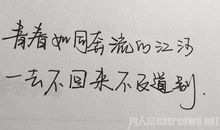 青春如同奔流的江河
一去不回来不及道别.